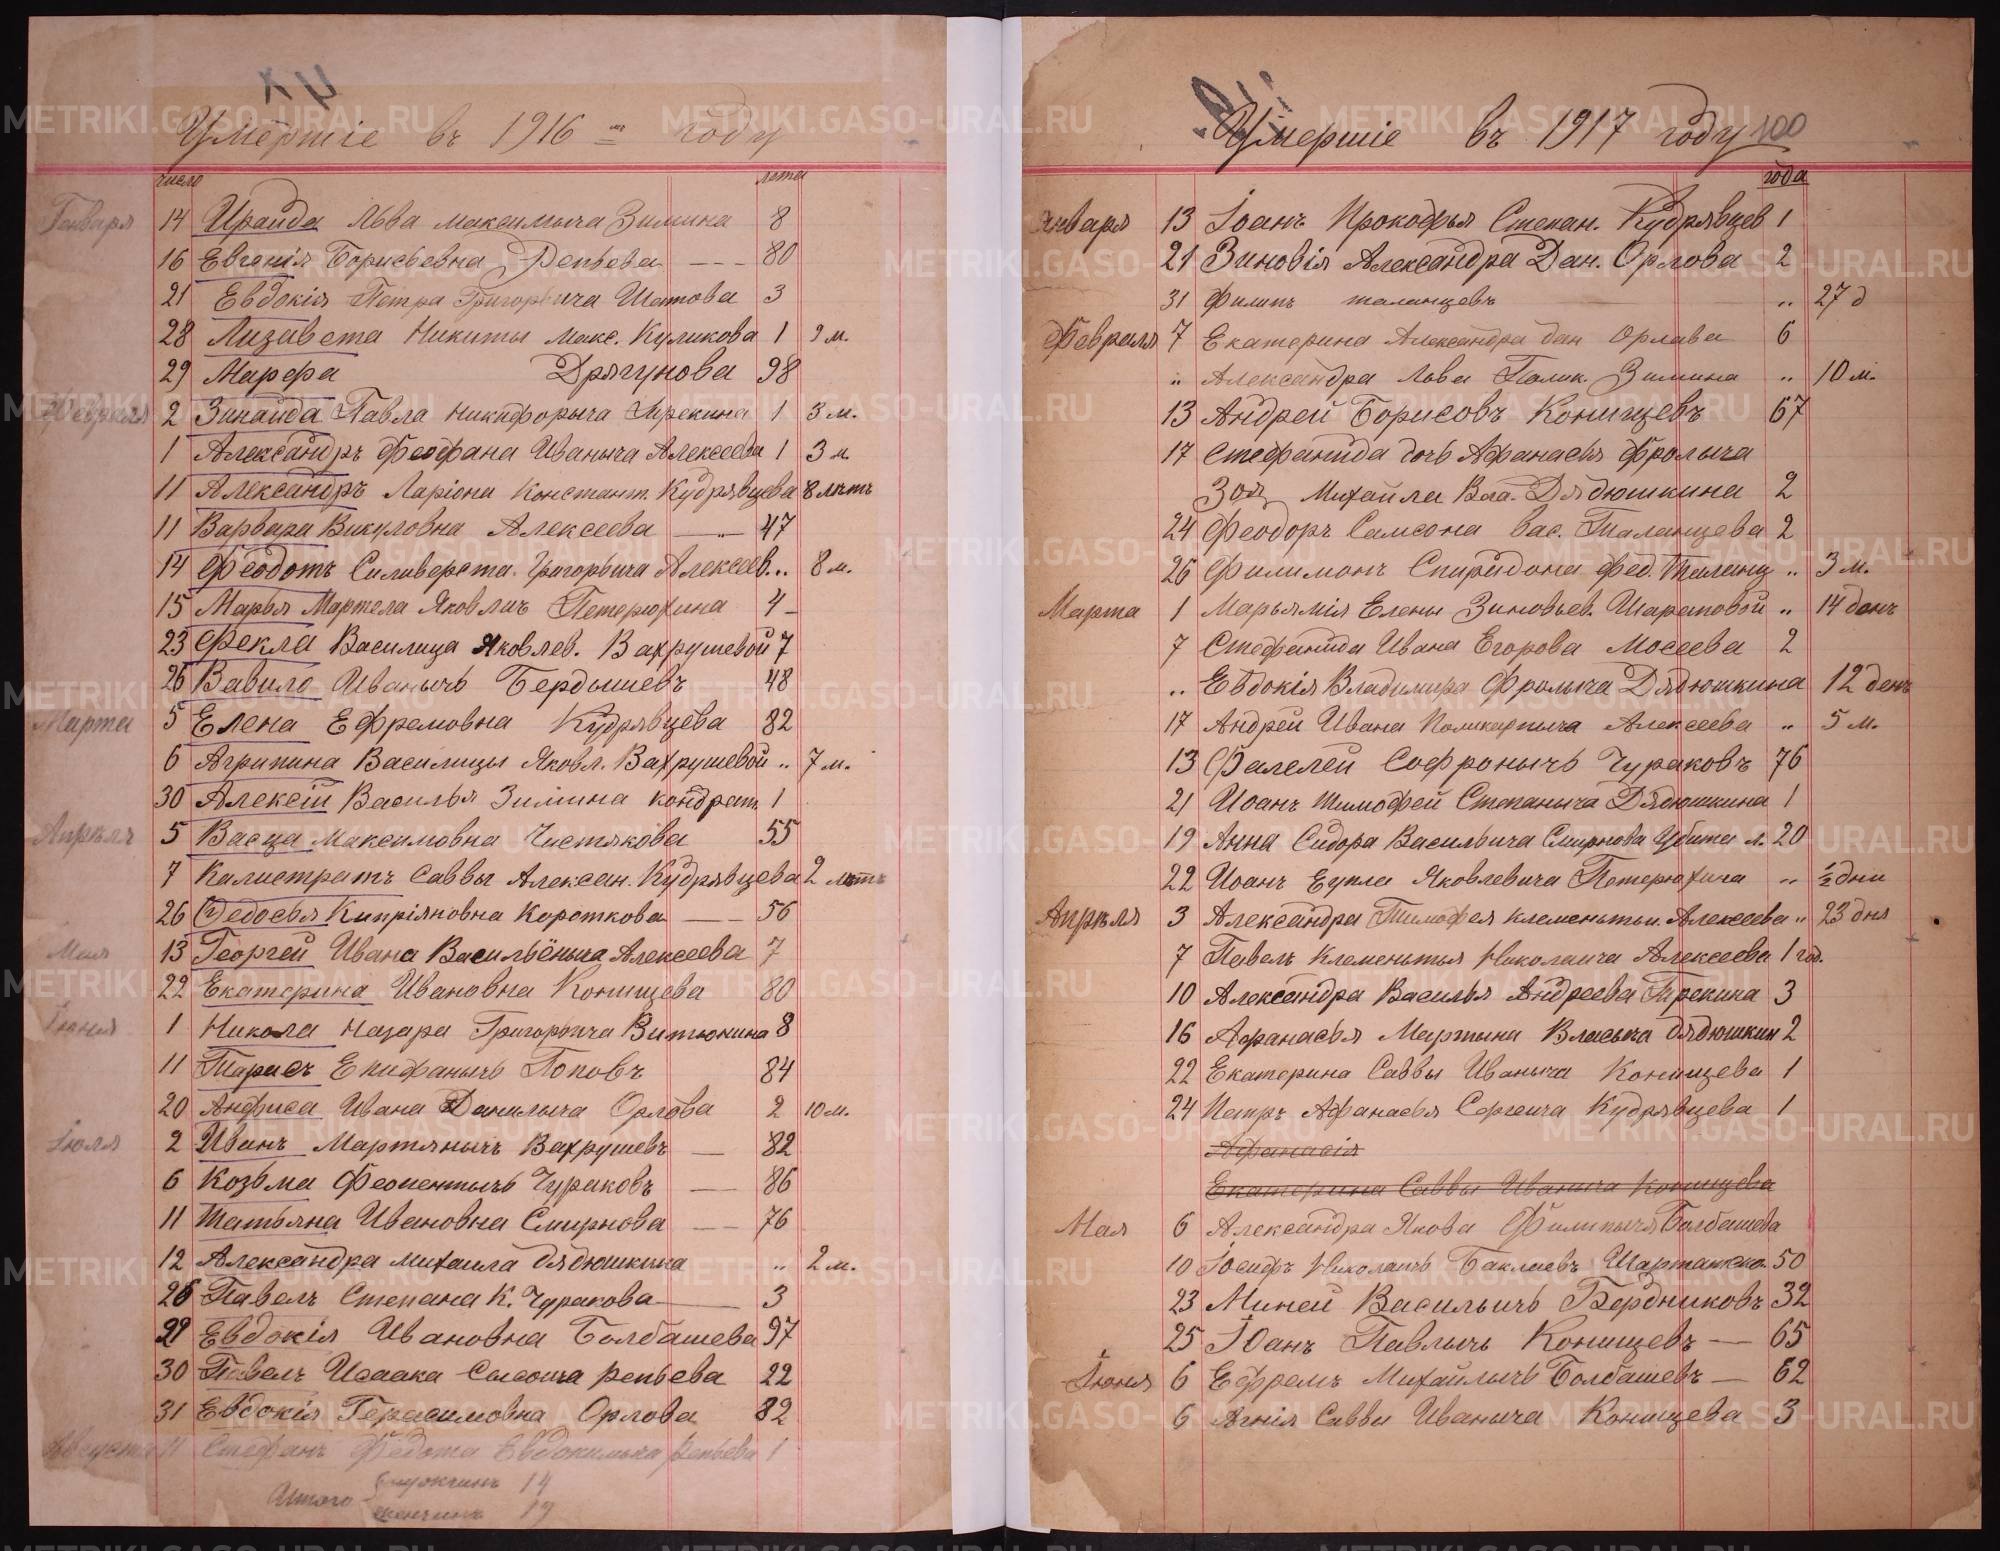 Умершіе въ 1916 году
число лета
Января 14 Ираида Льва Максимыча Зимина 8
16 Евгенія Борисьевна Репьева 80
21 Евдокія Петра Григорьича Шатова 3
28 Лизавета Никиты Макс. Куликова 1 9 м.
29 Марфа Дрягунова 98
Февраля 2 Зинаида Павла Никифорыча Трекина 1 3 м.
1 Александръ Феофана Иваныча Алексеева 1 3 м.
11 Александръ Ларіона Констант. Кудрявцева 8 летъ
11 Варвара Викуловна Алексеева 47
14 Феодотъ Силиверста Григорьича Алексеев. „ 8 м.
15 Марья Мартела Яковлич Петерюхина 4
23 Фекла Василица Яковлев. Вахрушевой 7
26 Вавило Иванычъ Бердышевъ 48
Марта 5 Елена Ефремовна Кудрявцева 82
6 Агрипина Василицы Яковл. Вахрушевой „ 7 м.
30 Алексій Василья Зимина кондрат. 1
Апрѣль 5 Васца Максимовна Чистякова 55
7 Калистратъ Саввы Алексан. Кудрявцева 2 летъ
26 Федосья Кипріяновна Короткова 56
Мая 13 Георгей Ивана Васильёныча Алексеева 7
22 Екатерина Ивановна Конищева 80
Іюня 1 Никола Назара Григорьича Витюнина 8
11 Тарисъ Епифанычъ Поповъ 84
20 Анфиса Ивана Данилыча Орлова 2 10 м.
Іюля 2 Иванъ Мартянычъ Вахрушевъ 82
6 Козьма Феопентычъ Чураковъ 86
11 Татьяна Ивановна Смирнова 76
12 Александра Михаила Дядюшкина „ 2 м.
26 Павелъ Степана К. Чуракова 3
29 Евдокія Ивановна Болбашева 97
30 Павелъ Исаака Сысоича Репьева 22
31 Евдокія Герасимовна Орлова 82
Августа 11 Стефанъ Федота Евдокимыча Репьева 1
Итого мужчинъ 14
женчинъ 19
Умершіе въ 1917 году 100
года
Января 13 Іоанъ Прокофья Степан. Кудрявцев 1
21 Зиновія Александра Дан. Орлова 2
31 Филипъ таланцевъ „ 27 д
Февраля 7 Екатерина Александра дан Орлава 6
„ Александра Льва Полик. Зимина „ 10 м.
13 Андрей Борисовъ Конищевъ 67
17 Стефанида дочь Афанасья Фролыча
Зоя Михайла Вла. Дядюшкина 2
24 Феодоръ Самсона Вас. Таланцева 2
26 Филимонъ Спиридона Фед. Таланц „ 3 м.
Марта 1 Марьямія Елены Зиновьев. Шараповой „ 14 денъ
7 Стефанида Ивана Егорова Мосеева 2
„ Евдокія Владимира Фролыча Дядюшкина 12 день
17 Андрей Ивана Поликарпыча Алексеева „ 5 м.
13 Фалелей Софронычъ Чураковъ 76
21 Иоанъ Тимофей Степаныча Дядюшкина 1
19 Анна Сидора Васильича Смирнова Убита л. 20
22 Иоанъ Еупла Яковлевича Петерюхина „ ½ дни
Апрѣля 3 Александра Тимофея Клеменьтьи. Алексеева „ 23 дня
7 Павелъ Клеменьтья Николаича Алексеева 1 год.
10 Александра Василья Андреева Трекина 3
16 Афанасья Мартына Власыча Дядюшкин 2
22 Екатерина Саввы Иваныча Конищева 1
24 Петръ Афанасья Сергеича Кудрявцева 1
Афанасія
Екатерина Саввы Иваныча Конищева
Мая 6 Александра Якова Филипыча Болбашева
10 Іосифъ Николаичъ Баклаевъ Шарташско. 50
23 Миней Васильичъ Бердниковъ 32
25 Іоанъ Павлычъ Конищевъ 65
Іюня 6 Ефремъ Михайлычъ Болбашевъ 62
6 Агнія Саввы Иваныча Конищева 3
METRIKI.GASO-URAL.RU